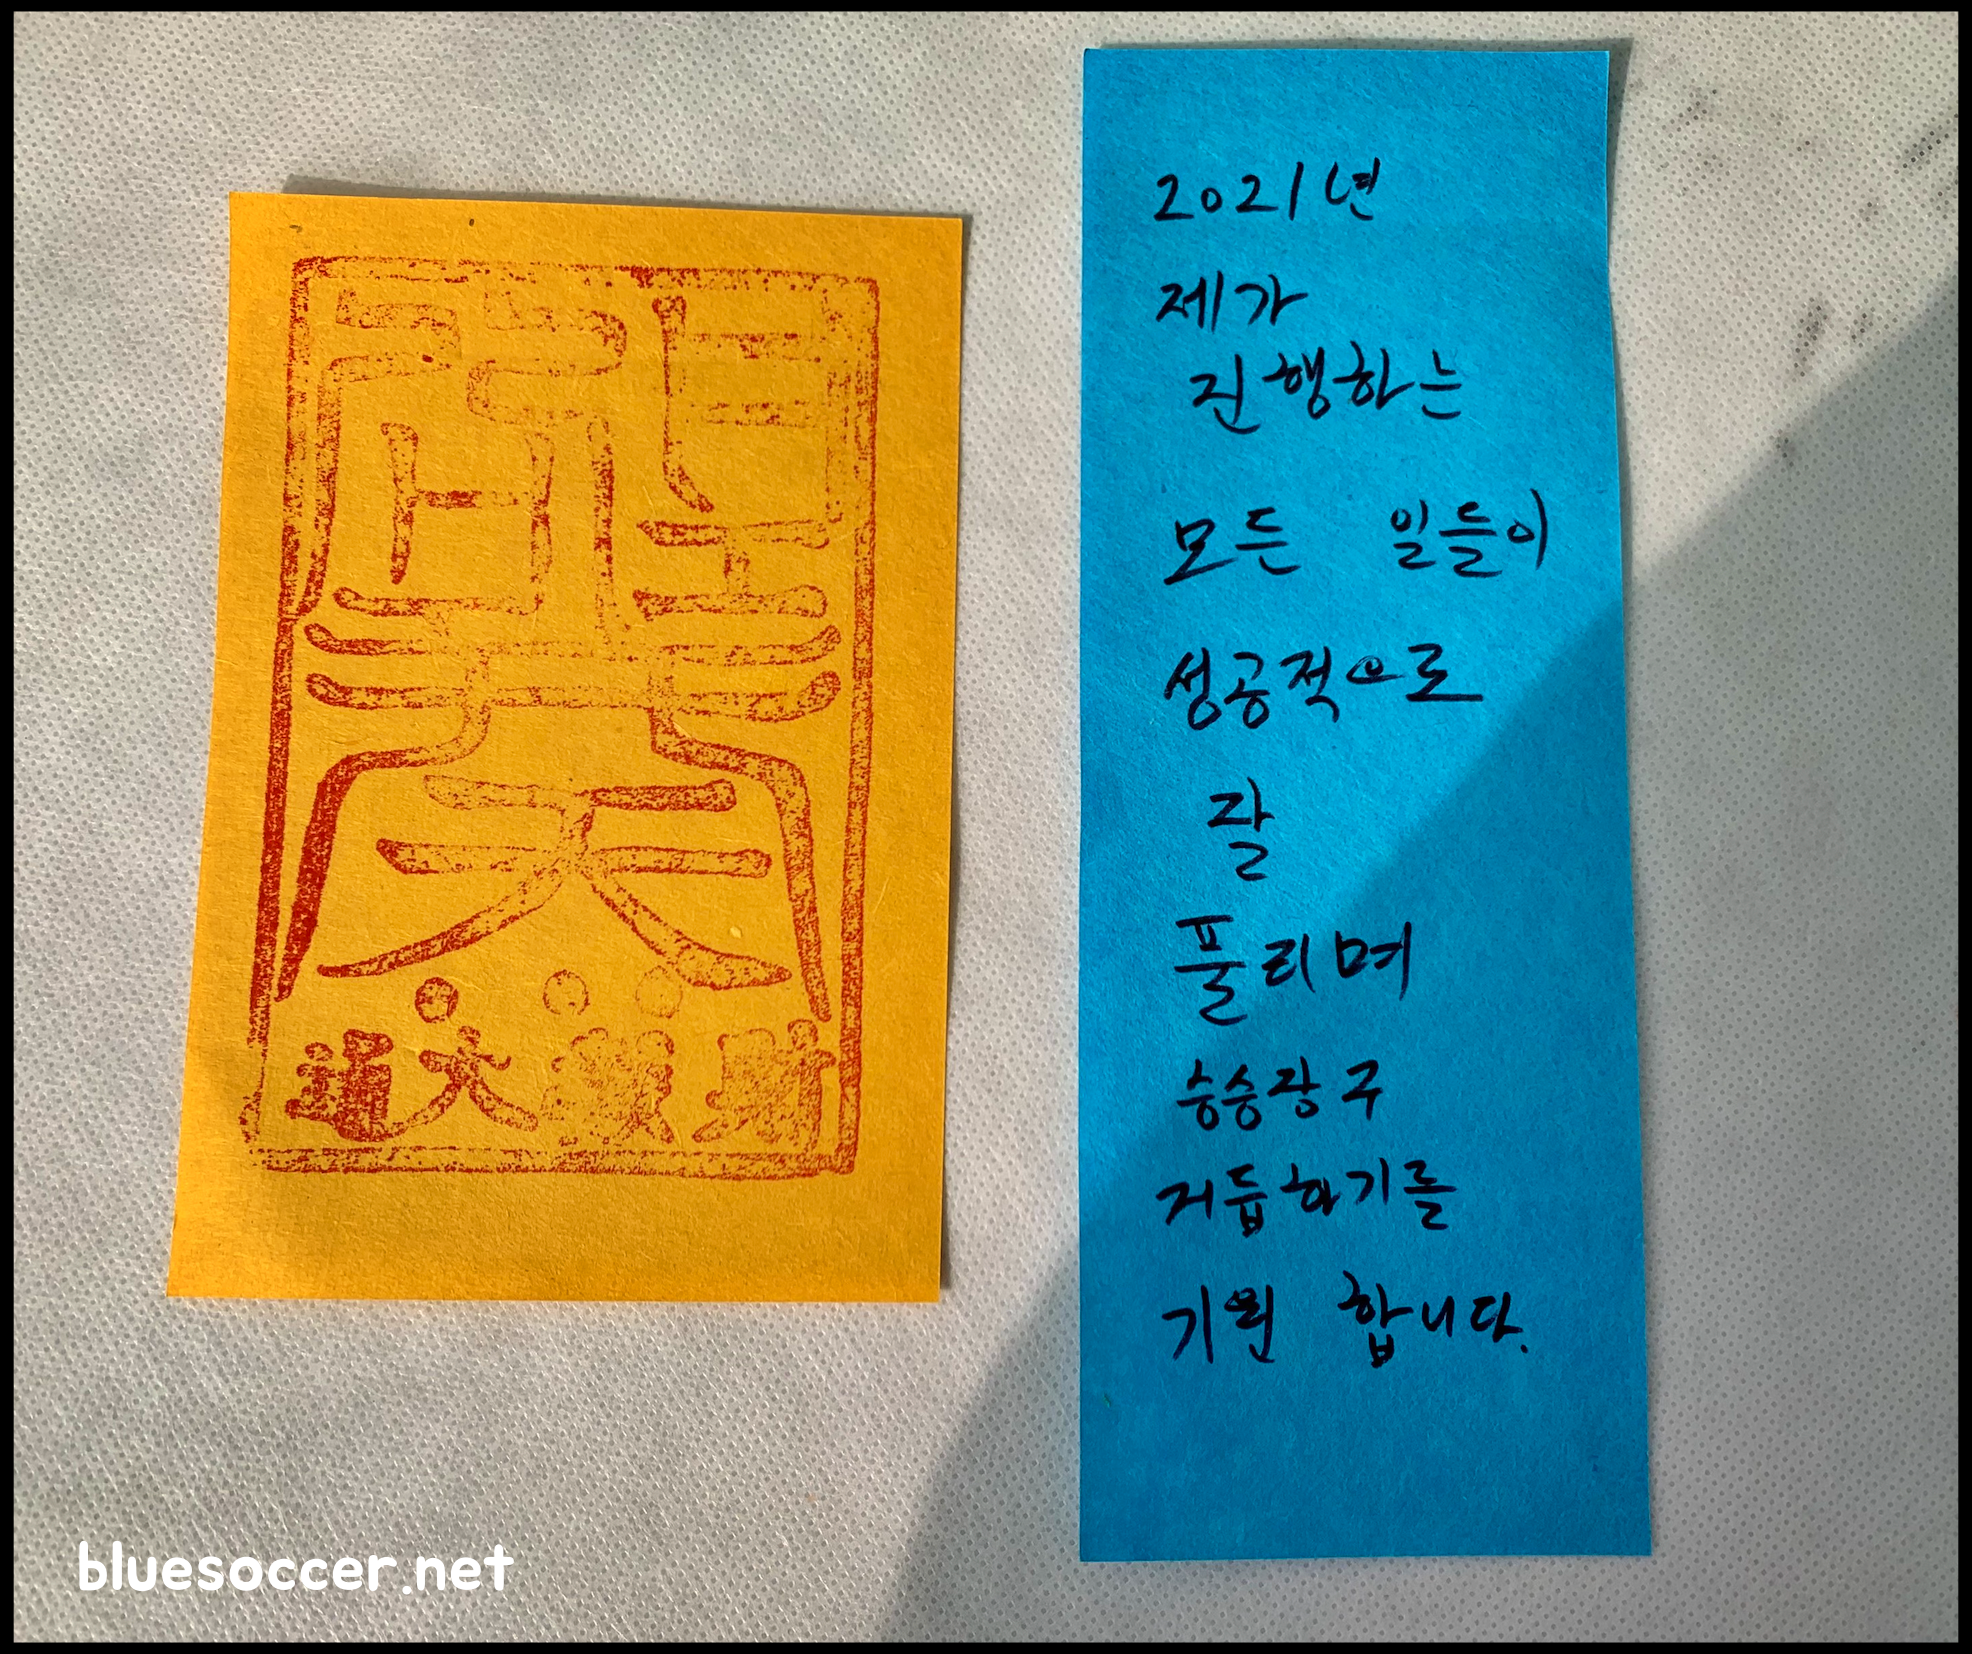 2021년
제가
진행하는
모든 일들이
성공적으로
잘
풀리며
승승장구
거듭하기를
기원 합니다.
bluesoccer.net